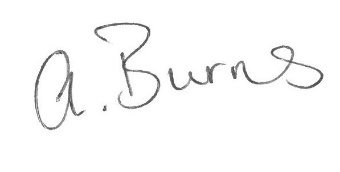 A. Burns